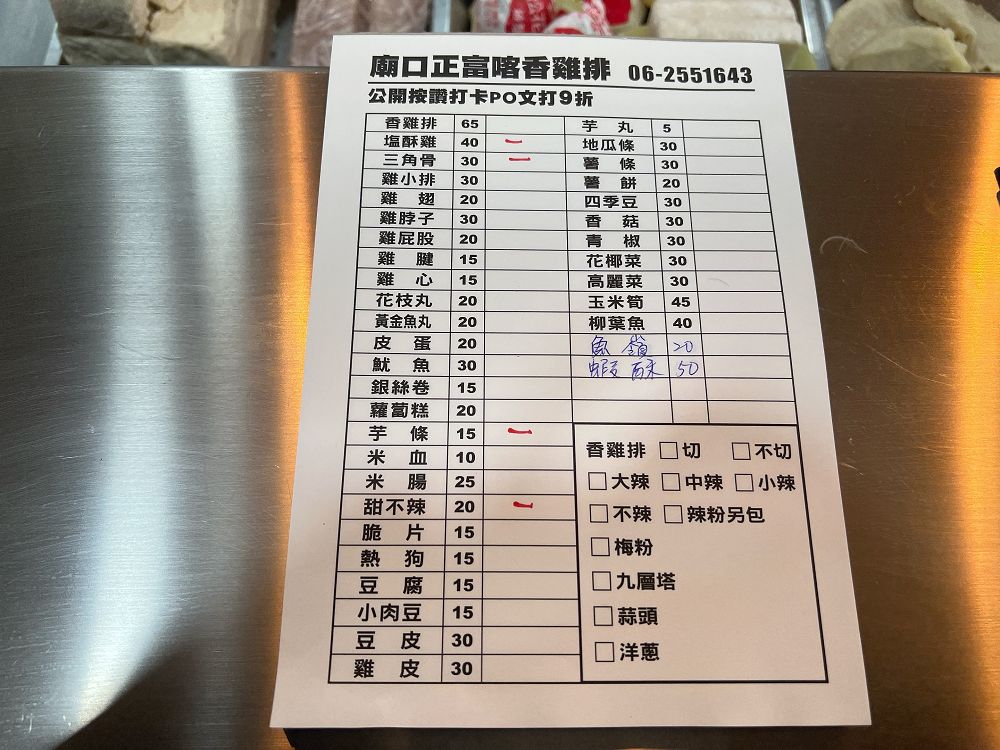 廟口正富喀香雞排 06-2551643
公開按讚打卡PO文打9折
香雞排 65
塩酥雞 40 一
三角骨 30 一
雞小排 30
雞翅 20
雞脖子 30
雞屁股 20
雞腱 15
雞心 15
花枝丸 20
黃金魚丸 20
皮蛋 20
魷魚 30
銀絲卷 15
蘿蔔糕 20
芋條 15 一
米血 10
米腸 25
甜不辣 20 一
脆片 15
熱狗 15
豆腐 15
小肉豆 15
豆皮 30
雞皮 30
芋丸 5
地瓜條 30
薯條 30
薯餅 20
四季豆 30
香菇 30
青椒 30
花椰菜 30
高麗菜 30
玉米筍 45
柳葉魚 40
魚 20
蝦酥 50
香雞排 □切 □不切
□大辣 □中辣 □小辣
□不辣 □辣粉另包
□梅粉
□九層塔
□蒜頭
□洋蔥